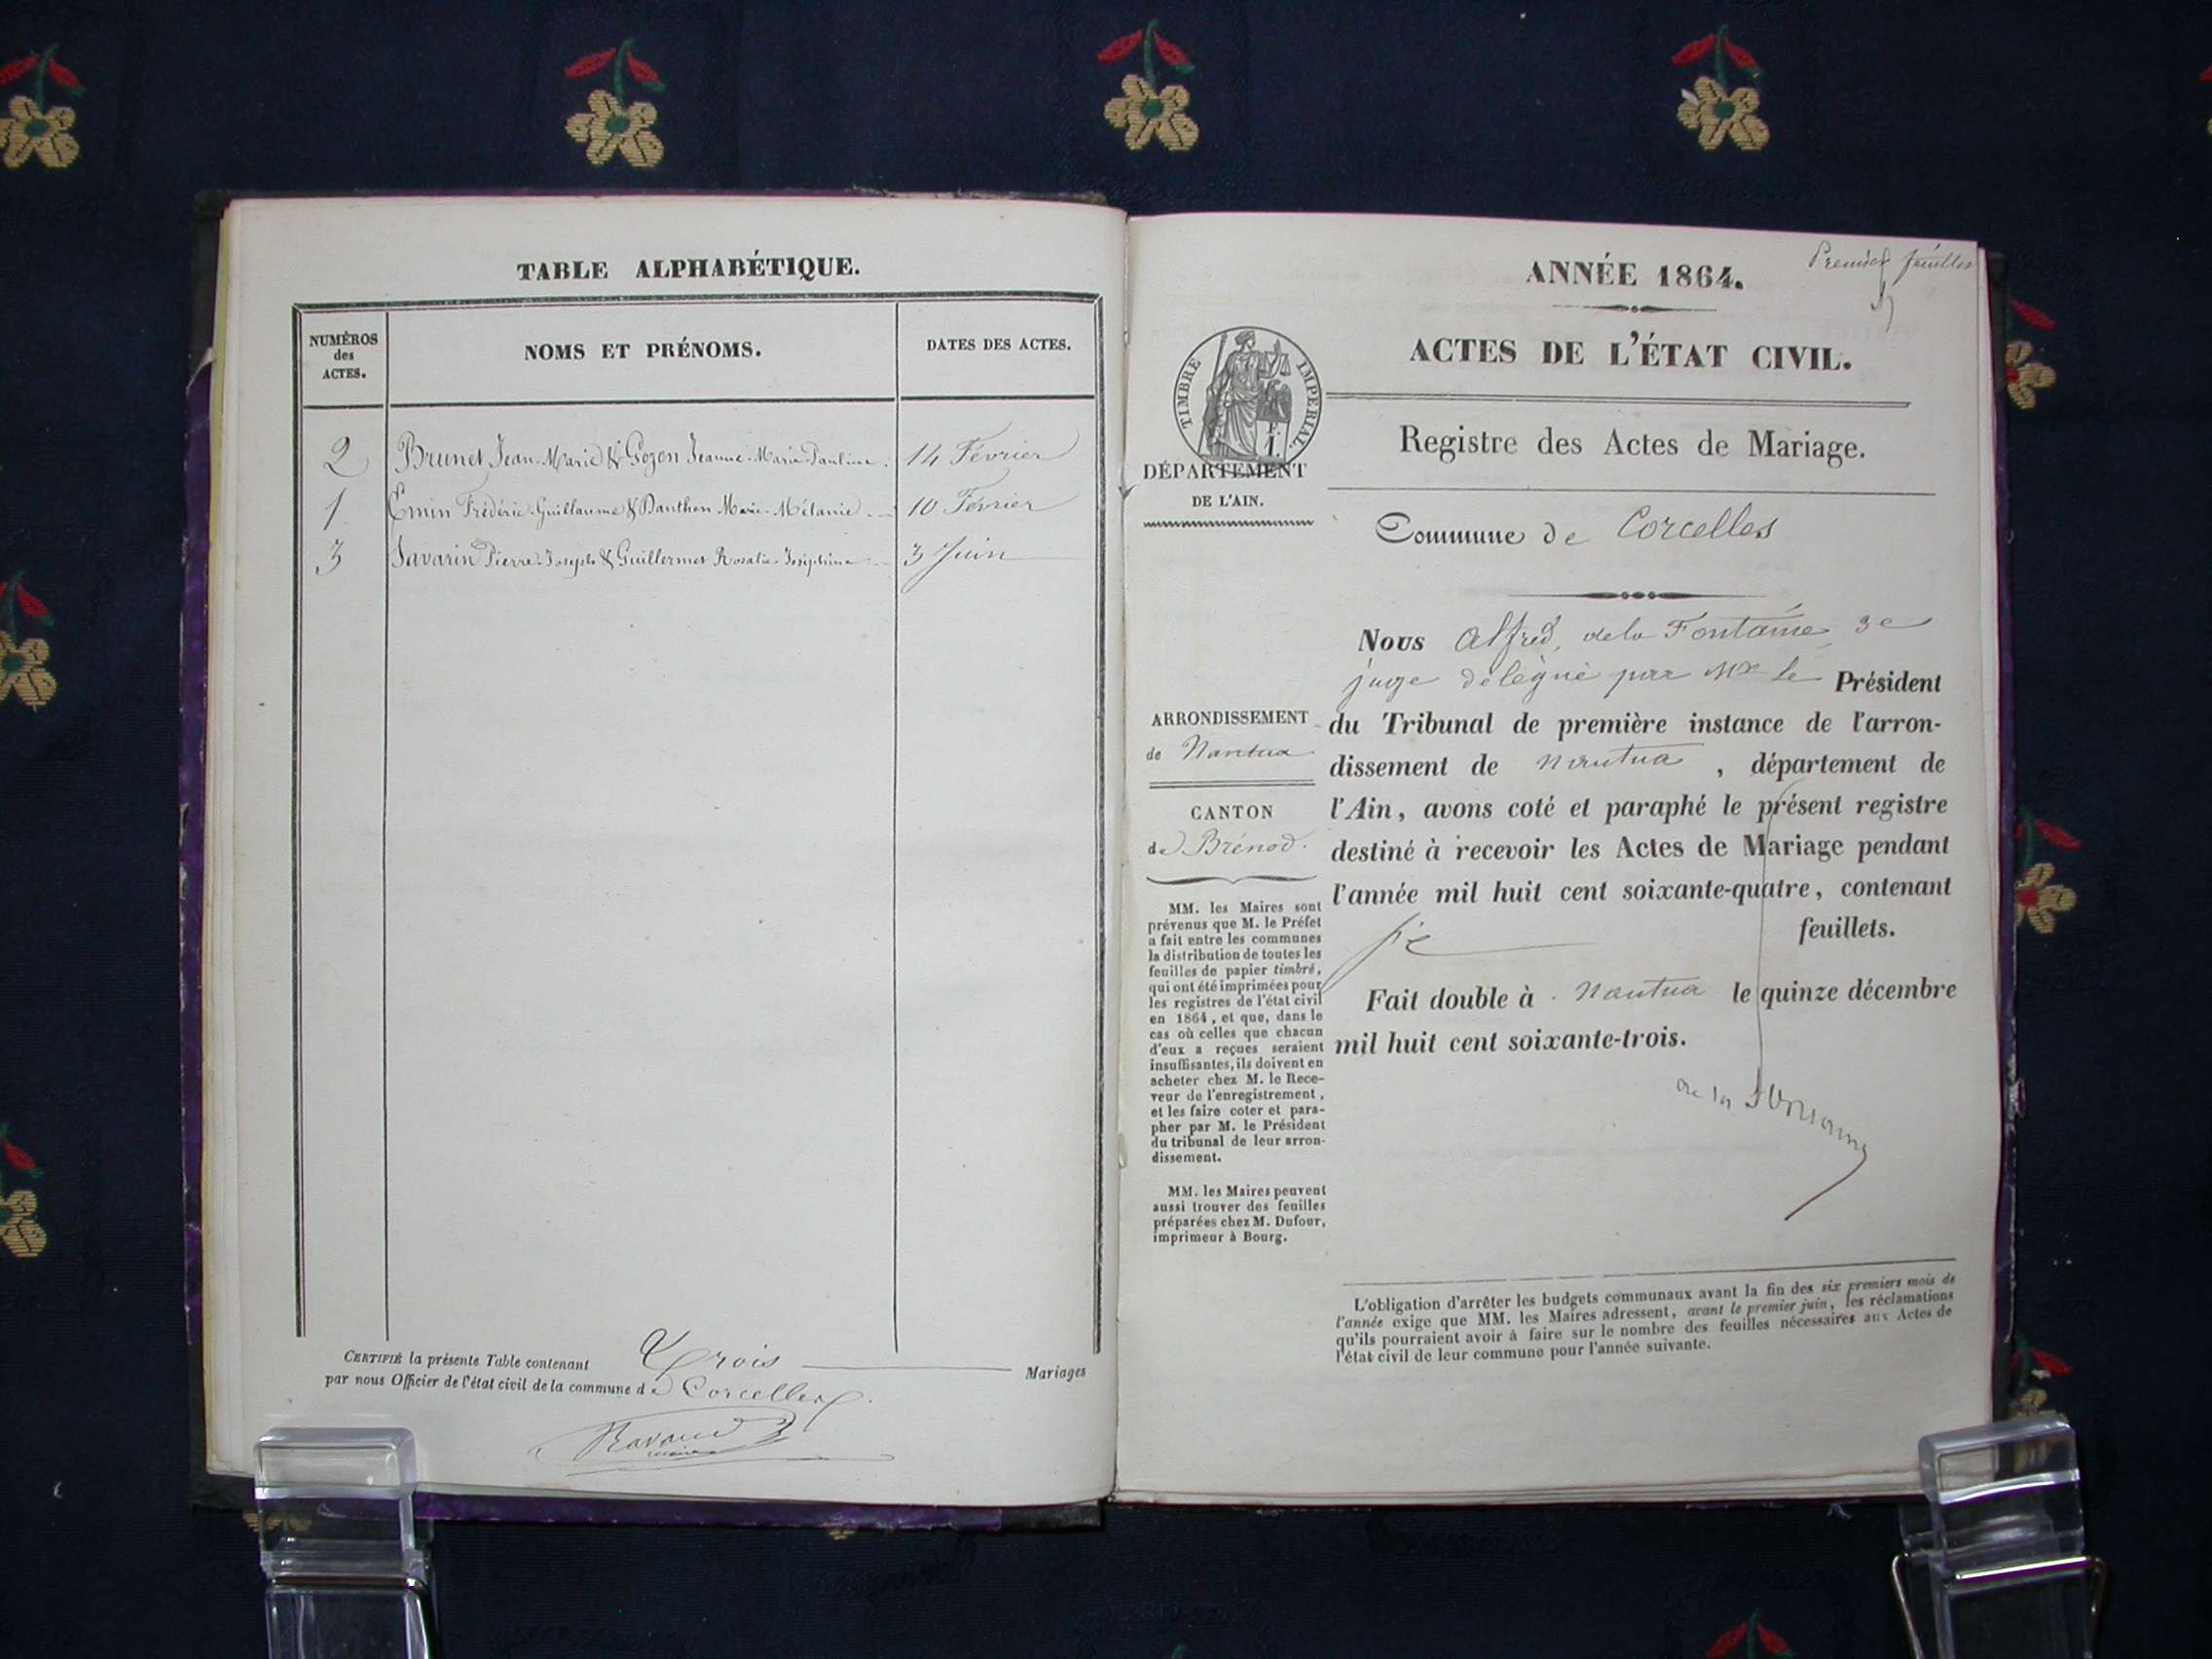 TABLE ALPHABÉTIQUE.
NUMÉROS
des
ACTES.
NOMS ET PRÉNOMS.
DATES DES ACTES.
2 Brunet Jean-Marie & Gozon Jeanne-Marie-Pauline. 14 Février
1 Emin Frédéric-Guillaume & Danthon Marie-Mélanie 10 Février
3 Savarin Pierre-Joseph & Guillermet Rosalie-Joséphine 3 Juin
CERTIFIÉ la présente Table contenant Trois Mariages
par nous Officier de l'état civil de la commune de Corcelles.
Ravaud
maire
Premier feuillet
ANNÉE 1864.
ACTES DE L'ÉTAT CIVIL.
TIMBRE IMPERIAL.
DÉPARTEMENT
DE L'AIN.
Registre des Actes de Mariage.
Commune de Corcelles
ARRONDISSEMENT
de Nantua
CANTON
de Brénod.
MM. les Maires sont
prévenus que M. le Préfet
a fait entre les communes
la distribution de toutes les
feuilles de papier timbré,
qui ont été imprimées pour
les registres de l'état civil
en 1864, et que, dans le
cas où celles que chacun
d'eux a reçues seraient
insuffisantes, ils doivent en
acheter chez M. le Rece-
veur de l'enregistrement,
et les faire coter et para-
pher par M. le Président
du tribunal de leur arron-
dissement.
MM. les Maires peuvent
aussi trouver des feuilles
préparées chez M. Dufour,
imprimeur à Bourg.
Nous Alfred, de la Fontaine
juge délégué par Mr le Président
du Tribunal de première instance de l'arron-
dissement de Nantua, département de
l'Ain, avons coté et paraphé le présent registre
destiné à recevoir les Actes de Mariage pendant
l'année mil huit cent soixante-quatre, contenant
feuillets.
Fait double à Nantua le quinze décembre
mil huit cent soixante-trois.
de la Fontaine
L'obligation d'arrêter les budgets communaux avant la fin des six premiers mois de
l'année exige que MM. les Maires adressent, avant le premier juin, les réclamations
qu'ils pourraient avoir à faire sur le nombre des feuilles nécessaires aux Actes de
l'état civil de leur commune pour l'année suivante.